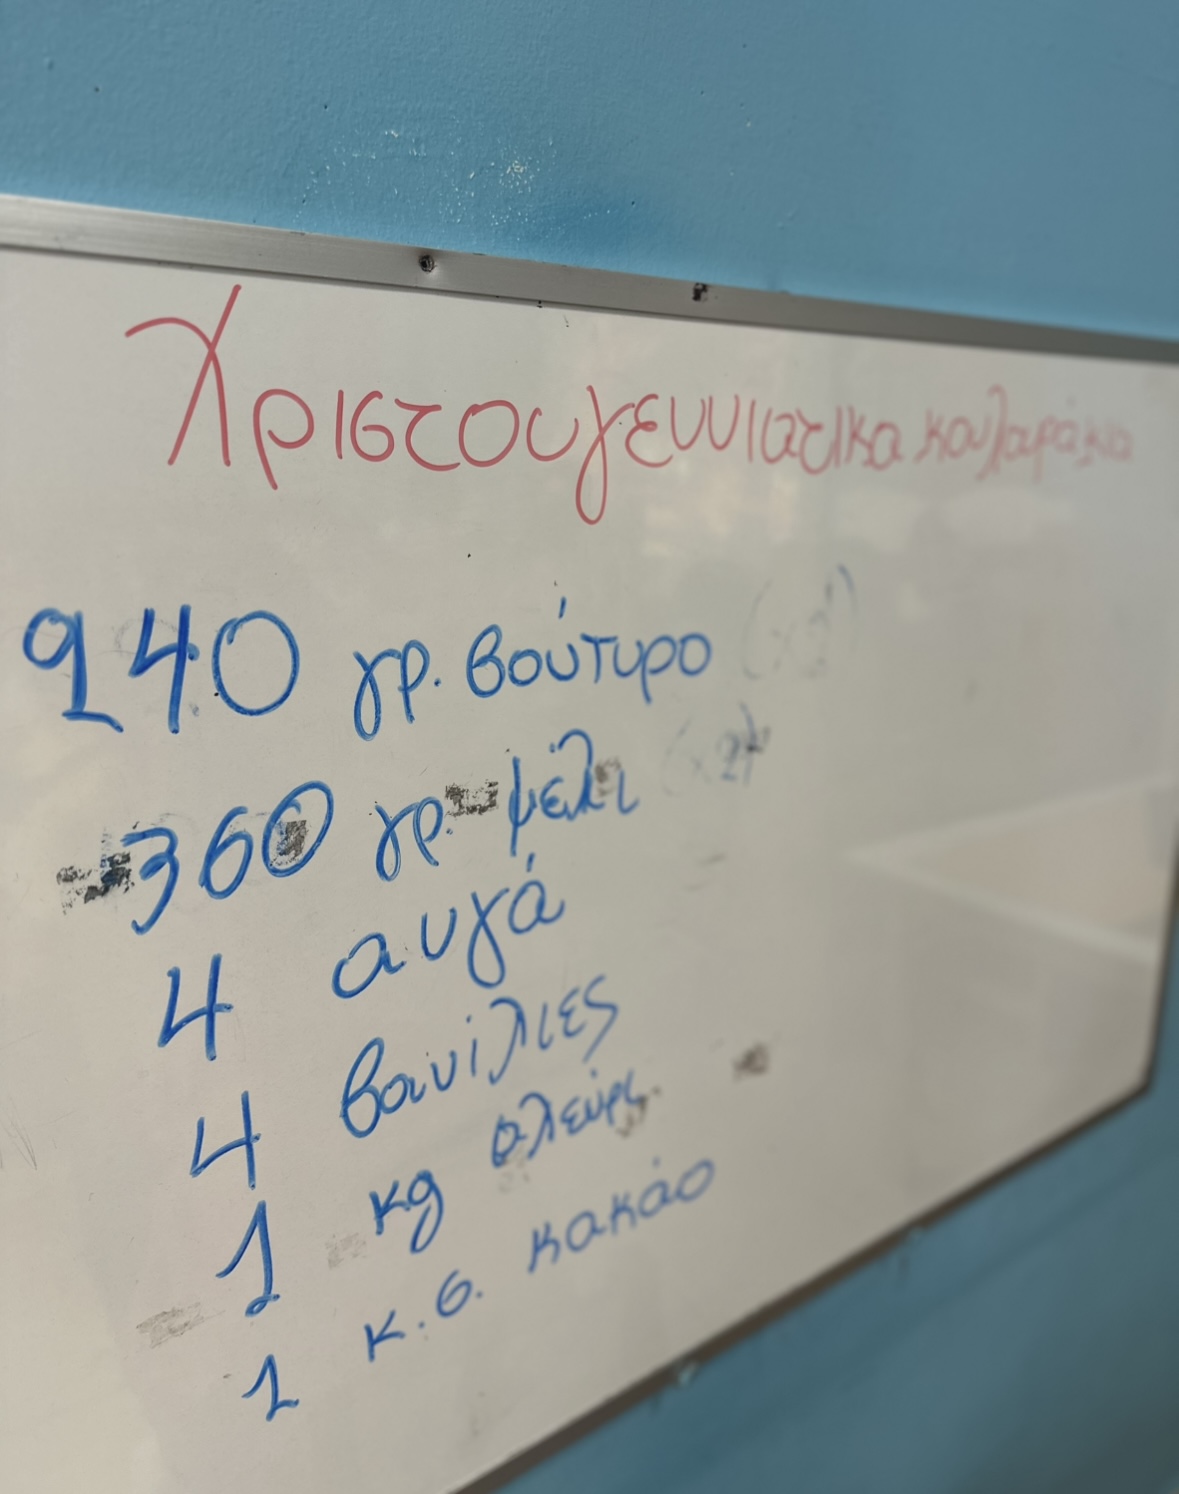 Χριστουγεννιατικα κουλουράκια
240 γρ. βούτυρο
360 γρ. μέλι (x2)
4 αυγά
4 βανίλιες
1 kg αλεύρι
1 κ.σ. κακάο